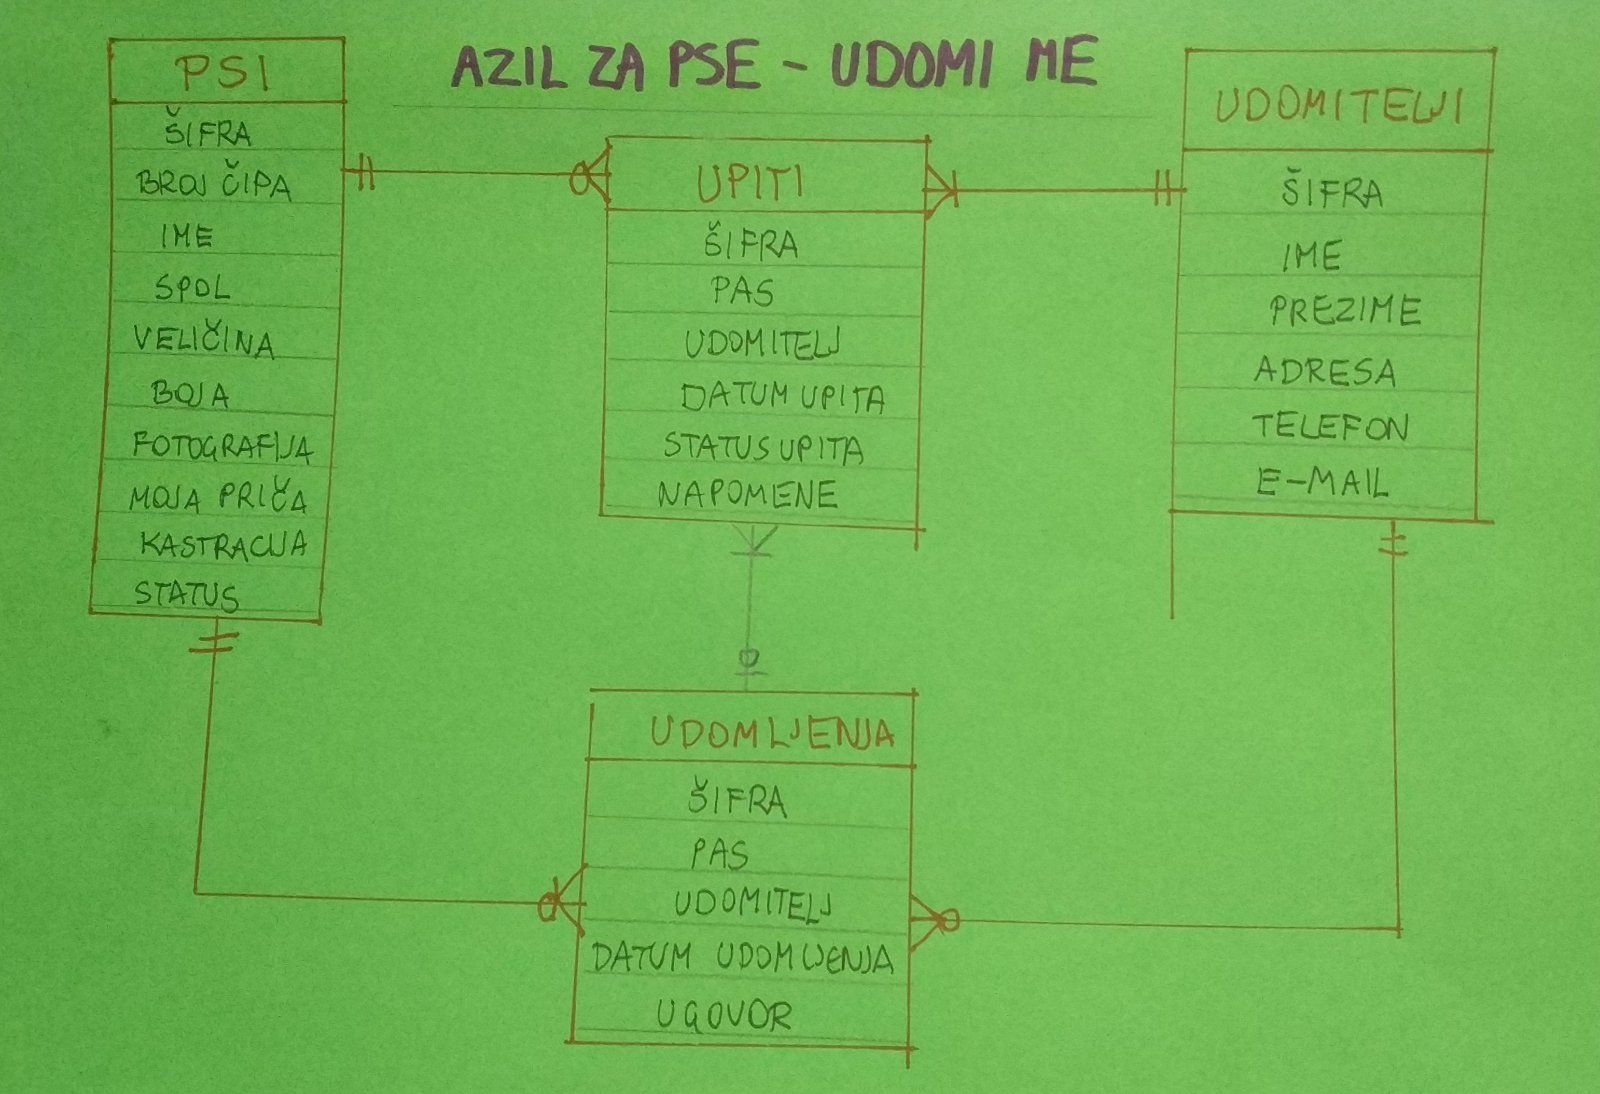 AZIL ZA PSE - UDOMI ME
PSI
ŠIFRA
BROJ ČIPA
IME
SPOL
VELIČINA
BOJA
FOTOGRAFIJA
MOJA PRIČA
KASTRACIJA
STATUS
UPITI
ŠIFRA
PAS
UDOMITELJ
DATUM UPITA
STATUS UPITA
NAPOMENE
UDOMITELJI
ŠIFRA
IME
PREZIME
ADRESA
TELEFON
E-MAIL
UDOMLJENJA
ŠIFRA
PAS
UDOMITELJ
DATUM UDOMLJENJA
UGOVOR